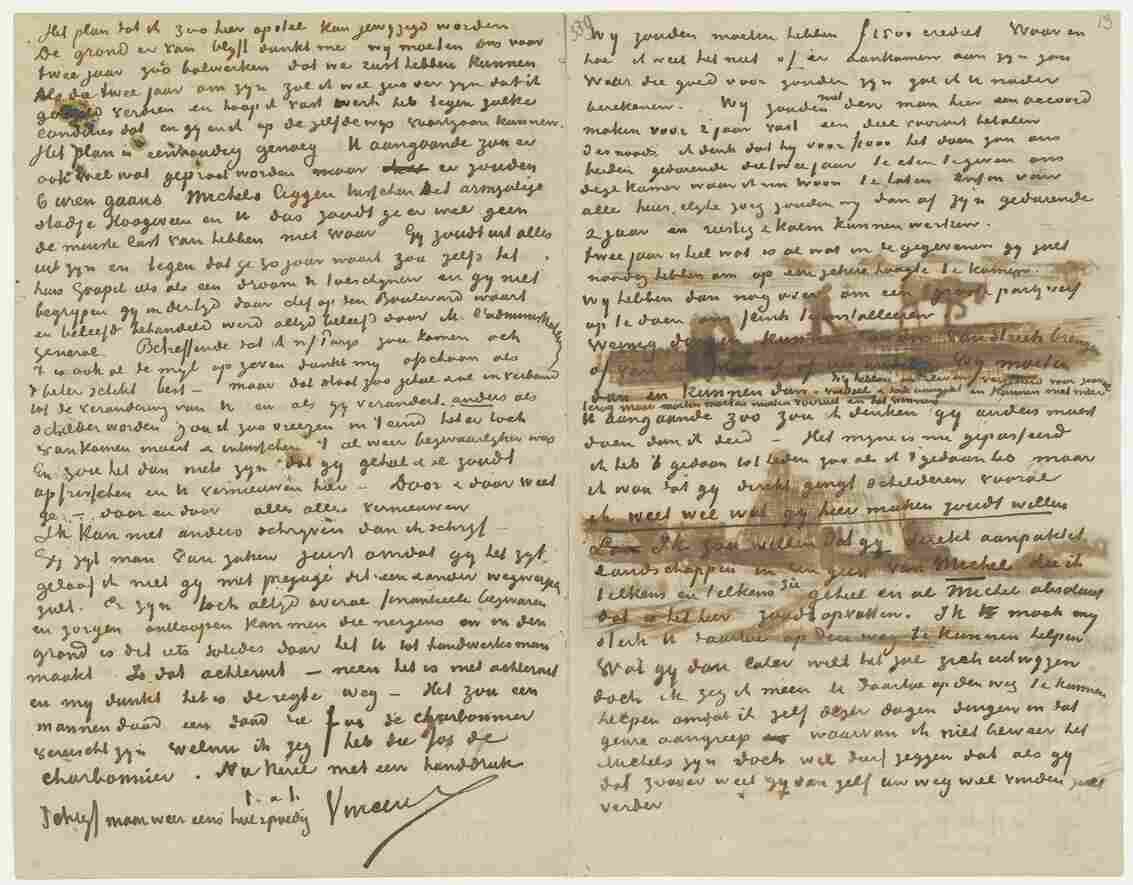 Het plan dat ik zoo hier opstel kan gewyzigd worden
De grond er van blyft dunkt me wy moeten ons voor
twee jaar zoo bolwerken dat we rust hebben kunnen
Als de twee jaar om zyn zal ik wel zoo ver zyn dat ik
verdien en hoop ik vast werk heb tegen zulke
condities dat en gy en ik op dezelfde wys voortgaan kunnen.
Het plan is eenvoudig genoeg U aangaande zou er
ook wel wat gepraat worden maar er zouden
6 uren gaans Michels liggen tusschen het armzalige
stadje Hoogeveen en U dus zoudt ge er wel geen
de minste last van hebben niet waar Gy zoudt uit alles
uit zyn en tegen dat ge 30 jaar waart zou zelfs het
huis Goupil als als een droom U toeschynen en gy niet
begrypen gy indertyd daar chef op den Boulevard waart
en beleefd behandeld werd altyd beleefd door M. l'administrateur
General. Betreffende dat ik n/Parys zou komen och
't is ook al de myl op zeven dunkt my ofschoon als
't beter schikt best – maar dat staat zoo geheel & al in verband
tot de verandering van U en als gy verandert anders als
schilder worden zou ik zoo vreezen in 't eind het er toch
van komen moest & intusschen 't al weer bezwaarlyker was
En zou het dan niets zyn dat gy geheel & al zoudt
opfrisschen en U vernieuwen hier – Door & door weet
ge – door en door alles alles vernieuwen
Ik kan niet anders schryven dan ik schryf
Gy zyt man van zaken juist omdat gy het zyt
geloof ik niet gy met prejugé dit een & ander wegwerpen
zult. Er zyn toch altyd overal financieele bezwaren
en zorgen ontloopen kan men die nergens en in den
grond is dit iets solides daar het U tot handwerksman
maakt Is dat achteruit – neen het is niet achteruit
en my dunkt het is de regte weg – Het zou een
mannendaad een daad die foi de charbonnier
vereischt zyn welnu ik zeg heb die foi de
charbonnier. Nu kerel met een handdruk
t. à t.
Schryf maar weer eens heel spoedig Vincent
339
13
Wy zouden moeten hebben f 1500 crediet Waar en
hoe ik weet het niet of er aankomen aan zyn zou
Waar die goed voor zouden zyn zal ik U nader
berekenen. Wy zouden met den man hier een accoord
maken voor 2 jaar vast een deel vooruit betalen
desnoods ik denk dat hy voor f 1000 het doen zou ons
beiden gedurende die twee jaar te eten te geven ons
deze kamer waar ik nu woon te laten enfin voor
alle huis elyke zorg zouden wy dan af zyn gedurende
2 jaar en rustig & kalm kunnen werken.
twee jaar is heel wat is al wat in de gegevenen gy zult
noodig hebben om op een zekere hoogte te komen.
Wy hebben dan nog over om een groote party verf
op te doen om flink te installeeren
Weinig dingen kunnen ons van streek brengen
of van Wy moeten
dan en kunnen dan
terug maar moeten moeten maken vooruit en het winnen
U aangaande zoo zou ik denken gy anders moest
doen dan ik deed – Het myne is nu gepasseerd
ik heb 't gedaan tot heden zoo als ik 't gedaan heb maar
ik wou dat gy direkt gingt schilderen vooral
ik weet wel wat gy hier maken zoudt willen
Ik zou willen dat gy direkt aanpaktet
landschappen in den geest van Michel die ik
telkens en telkens zie geheel en al Michel absoluut
dat is het hier zoudt opvatten. Ik maak my
sterk U daartoe op den weg te kunnen helpen.
Wat gy dan later wilt het zal zich uitwyzen
doch ik zeg ik meen U daartoe op den weg te kunnen
helpen omdat ik zelf dezer dagen dingen in dat
genre aangreep waarvan ik niet beweer het
Michels zyn doch wel durf zeggen dat als gy
dat zoover weet gy van zelf uw weg wel vinden zult
verder